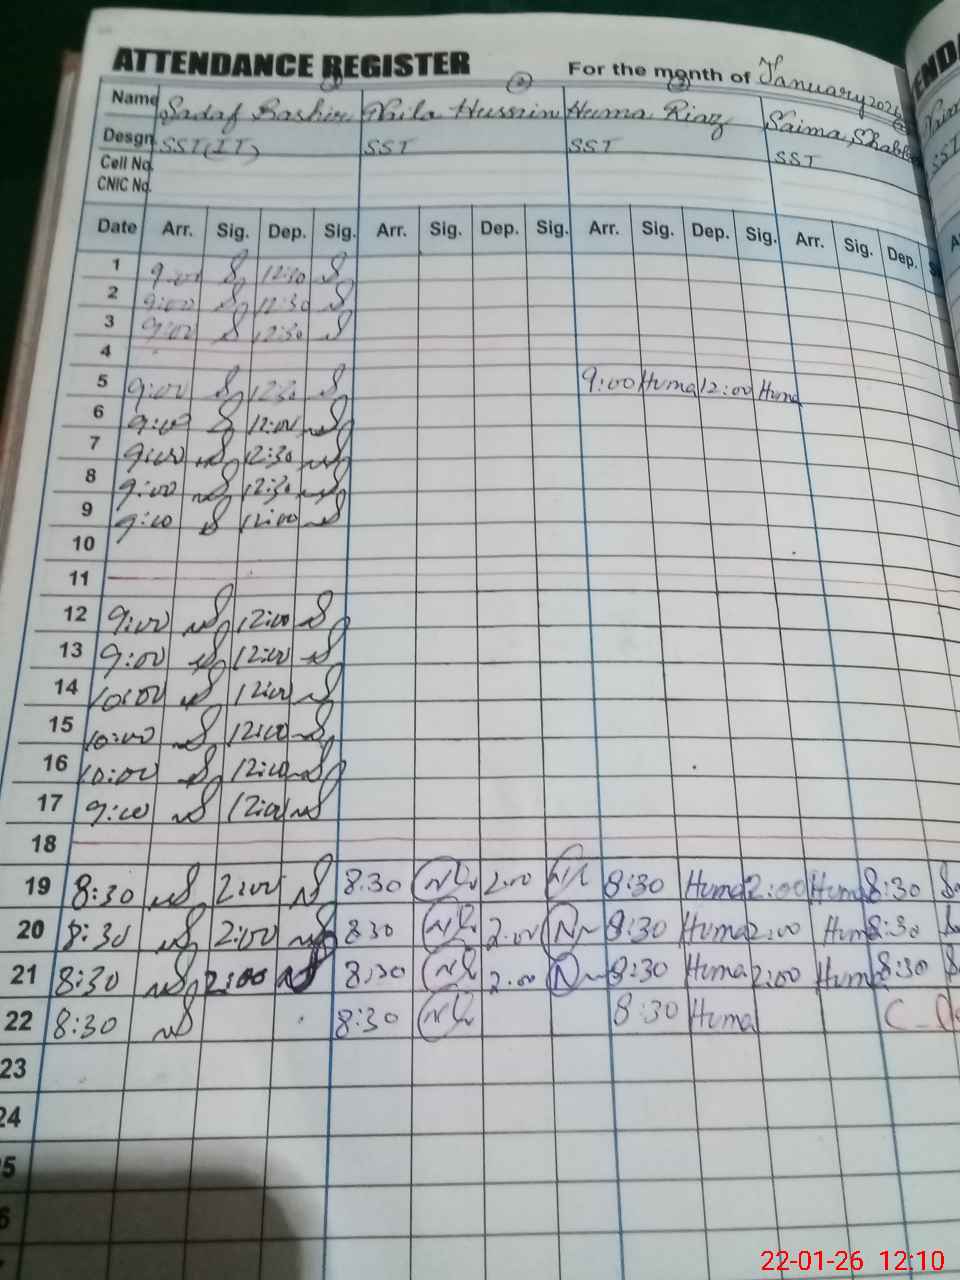 ATTENDANCE REGISTER For the month of January 2026
Name Sadaf Bashir Naila Hussain Huma Riaz Saima
Desgn SST(IT) SST SST SST SST
Cell No.
CNIC No.
Date Arr. Sig. Dep. Sig. Arr. Sig. Dep. Sig. Arr. Sig. Dep. Sig. Arr. Sig. Dep.
1 9:00 12:30
2 9:00 12:30
3 9:00 12:30
4
5 9:00 12:30 9:00 Huma 12:00 Huma
6 9:00 12:00
7 9:00 12:30
8 9:00 12:30
9 9:00 12:00
10
11
12 9:00 12:00
13 9:00 12:00
14 10:00 12:00
15 10:00 12:00
16 10:00 12:00
17 9:00 12:00
18
19 8:30 2:00 8:30 2:00 8:30 Huma 2:00 Huma 8:30
20 8:30 2:00 8:30 2:00 8:30 Huma 2:00 Huma 8:30
21 8:30 2:00 8:30 2:00 8:30 Huma 2:00 Huma 8:30
22 8:30 8:30 8:30 Huma
23
24
5
6
22-01-26 12:10